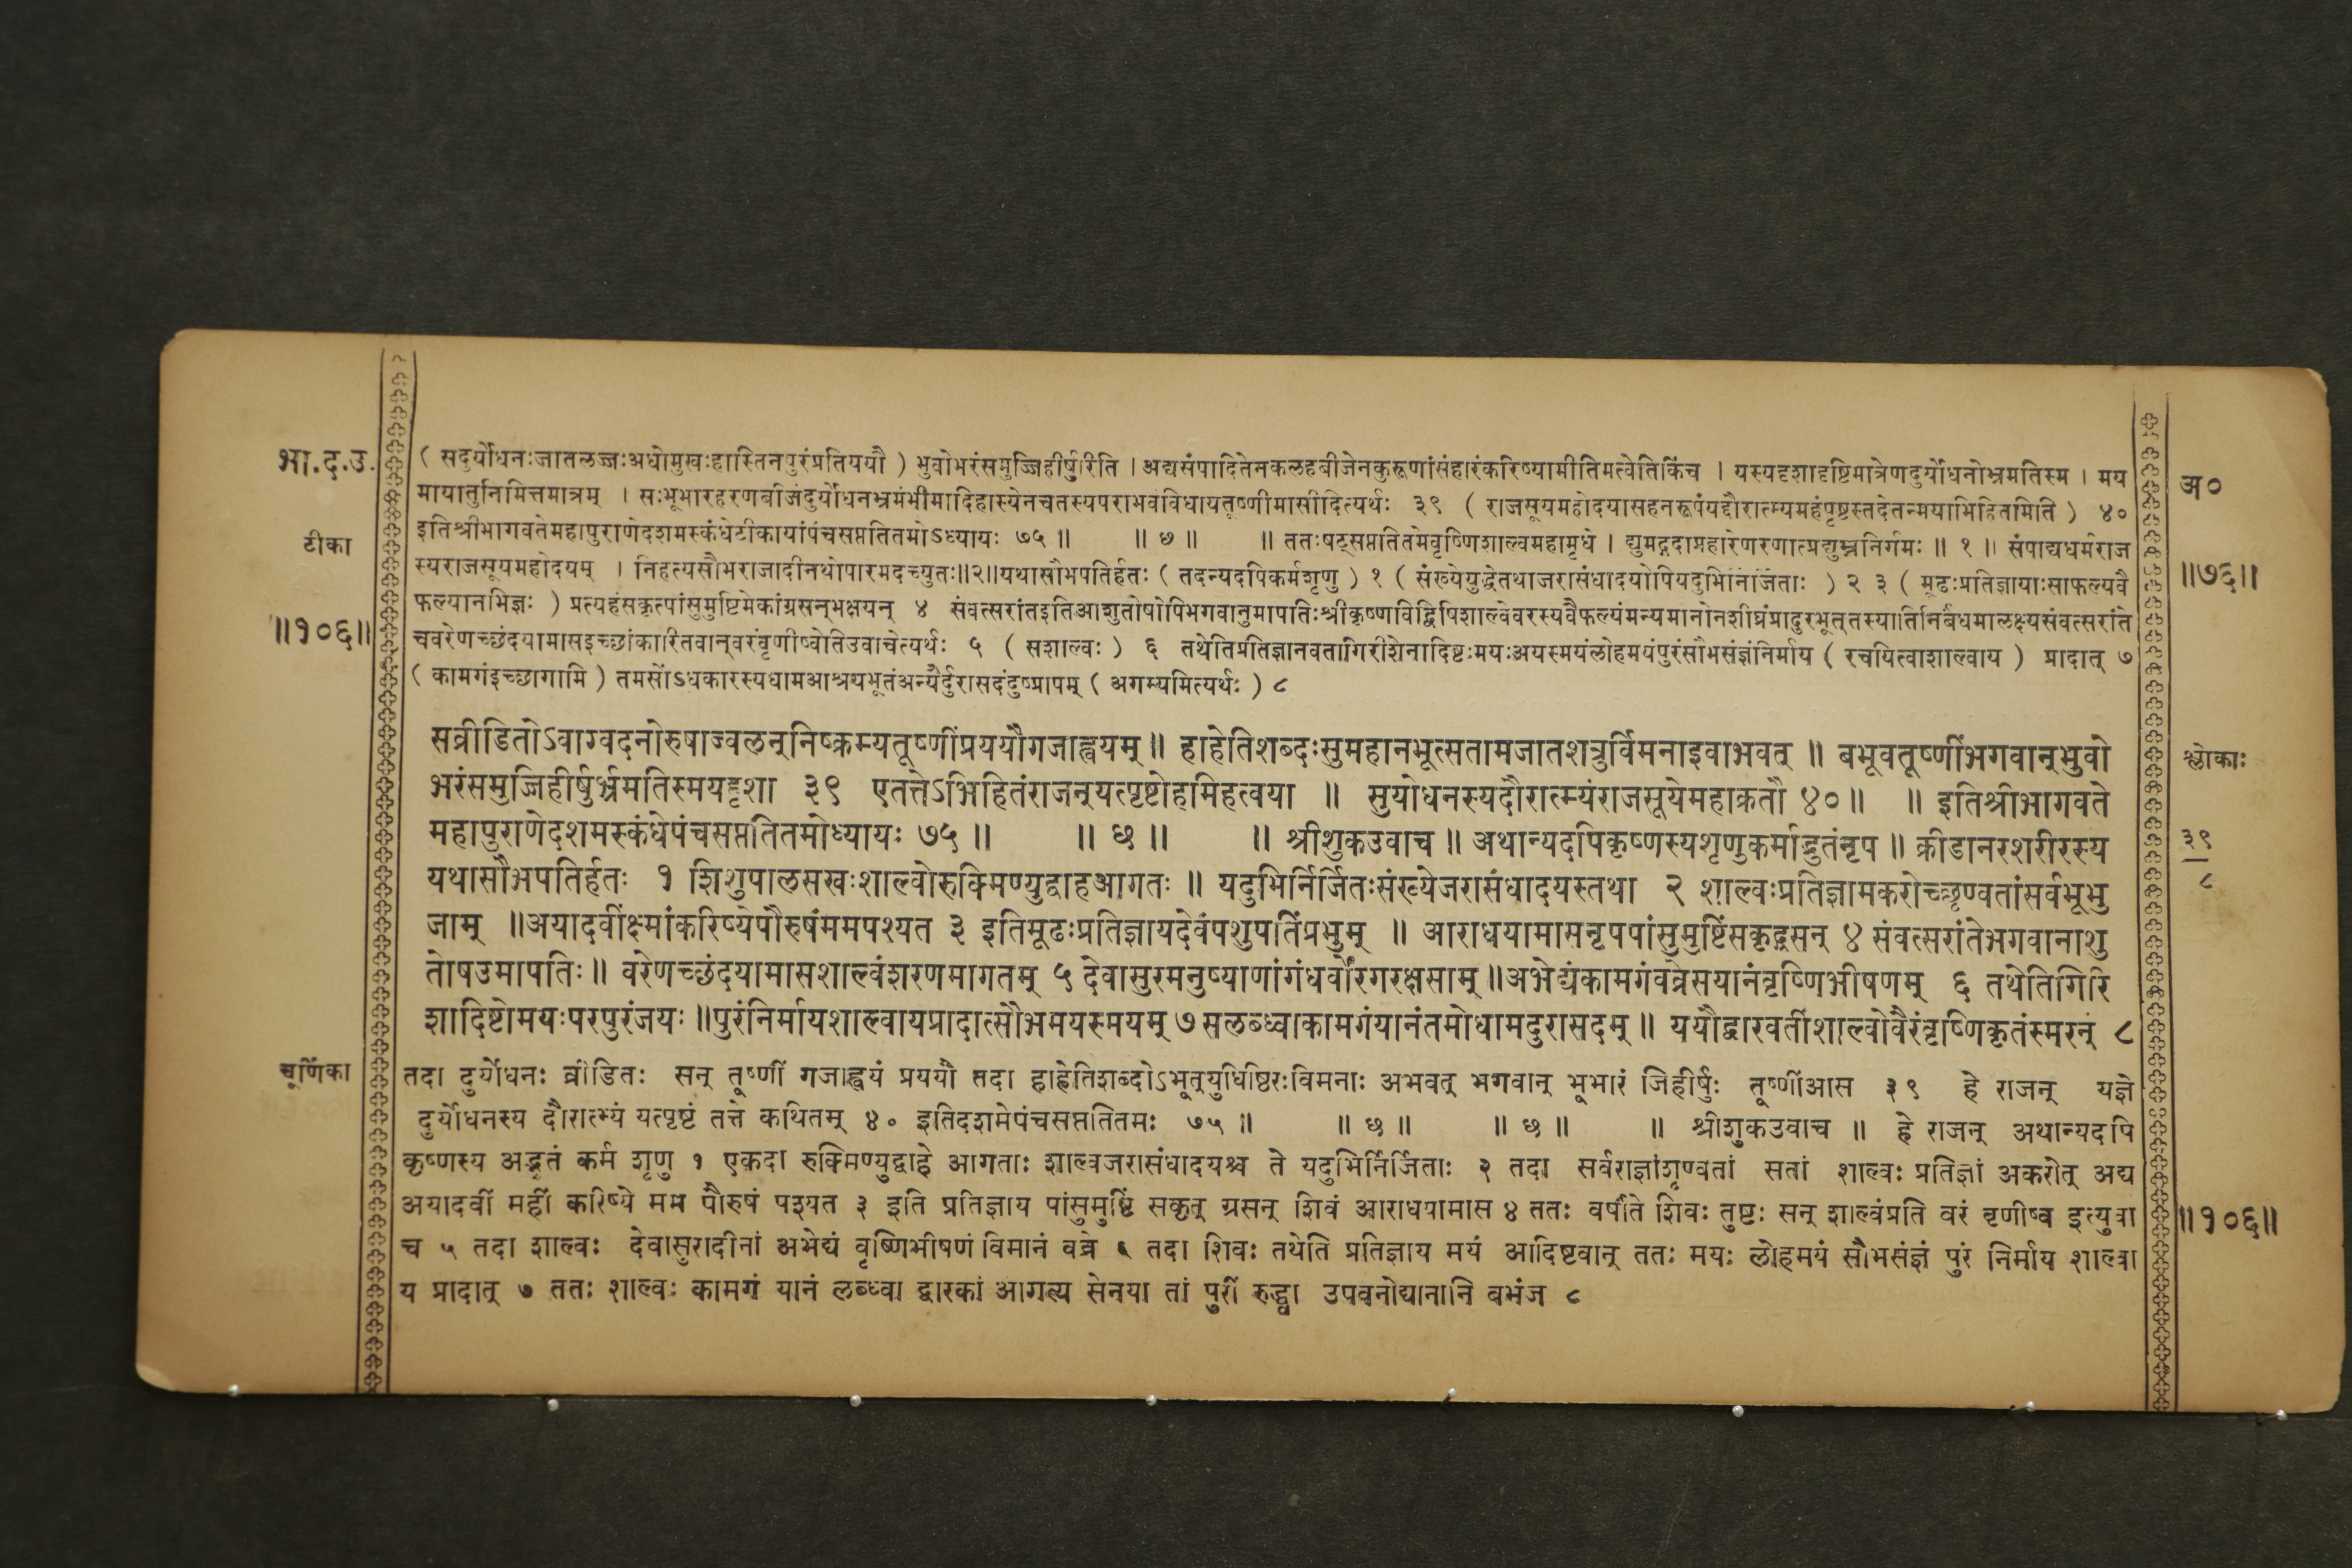 भा.द.उ.
टीका
॥१०६॥
( सदुर्योधनःजातलज्जःअधोमुखःहास्तिनपुरंप्रतिययौ ) भुवोभरंसमुज्जिहीर्षुरिति । अद्यसंपादितेनकलहबीजेनकुरूणांसंहारंकरिष्यामीतिमत्वेतिकिंच । यस्यदृशादृष्टिमात्रेणदुर्योधनोभ्रमतिस्म । मय
मायातुनिमित्तमात्रम् । सःभूभारहरणबीजंदुर्योधनभ्रमंभीमादिहास्येनचतस्यपराभवंविधायतूष्णीमासीदित्यर्थः ३९ ( राजसूयमहोदयासहनरूपंयद्दौरात्म्यमहंपृष्टस्तदेतन्मयाभिहितमिति ) ४०
इतिश्रीभागवतेमहापुराणेदशमस्कंधेटीकायांपंचसप्ततितमोऽध्यायः ७५ ॥ ॥ छ ॥ ॥ ततःषट्सप्ततितमेवृष्णिशाल्वमहामृधे । द्युमद्गदाप्रहारेणरणात्प्रद्युम्ननिर्गमः ॥ १ ॥ संपाद्यधर्मराज
स्यराजसूयमहोदयम् । निहत्यसौभराजादीनथोपारमदच्युतः॥२॥यथासौभपतिर्हतः ( तदन्यदपिकर्मशृणु ) १ ( संख्येयुद्धेतथाजरासंधादयोपियदुभिर्निर्जिताः ) २ ३ ( मूढःप्रतिज्ञायाःसाफल्यवै
फल्यानभिज्ञः ) प्रत्यहंसकृत्पांसुमुष्टिमेकांग्रसन्भक्षयन् ४ संवत्सरांतइतिआशुतोषोपिभगवानुमापतिःश्रीकृष्णविद्विषिशाल्वेवरस्यवैफल्यंमन्यमानोनशीघ्रंप्रादुरभूत्तस्यातिनिर्बंधमालक्ष्यसंवत्सरांते
चवरेणच्छंदयामासइच्छांकारितवान्वरंवृणीष्वेतिउवाचेत्यर्थः ५ ( सशाल्वः ) ६ तथेतिप्रतिज्ञानवतागिरीशेनादिष्टःमयःअयस्मयंलोहमयंपुरंसौभसंज्ञंनिर्माय ( रचयित्वाशाल्वाय ) प्रादात् ७
( कामगंइच्छागामि ) तमसोंऽधकारस्यधामआश्रयभूतंअन्यैर्दुरासदंदुष्प्रापम् ( अगम्यमित्यर्थः ) ८
सव्रीडितोऽवाग्वदनोरुषाज्वलन्निष्क्रम्यतूष्णींप्रययौगजाह्वयम् ॥ हाहेतिशब्दःसुमहानभूत्सतामजातशत्रुर्विमनाइवाभवत् ॥ बभूवतूष्णींभगवान्भुवो
भरंसमुज्जिहीर्षुर्भ्रमतिस्मयद्दृशा ३९ एतत्तेऽभिहितंराजन्यत्पृष्टोहमिहत्वया ॥ सुयोधनस्यदौरात्म्यंराजसूयेमहाक्रतौ ४० ॥ ॥ इतिश्रीभागवते
महापुराणेदशमस्कंधेपंचसप्ततितमोध्यायः ७५ ॥ ॥ छ ॥ ॥ श्रीशुकउवाच ॥ अथान्यदपिकृष्णस्यशृणुकर्माद्भुतंनृप ॥ क्रीडानरशरीरस्य
यथासौभपतिर्हतः १ शिशुपालसखःशाल्वोरुक्मिण्युद्वाहआगतः ॥ यदुभिर्निर्जितःसंख्येजरासंधादयस्तथा २ शाल्वःप्रतिज्ञामकरोच्छृण्वतांसर्वभूभु
जाम् ॥अयादवींक्ष्मांकरिष्येपौरुषंममपश्यत ३ इतिमूढःप्रतिज्ञायदेवंपशुपतिंप्रभुम् ॥ आराधयामासनृपपांसुमुष्टिंसकृद्ग्रसन् ४ संवत्सरांतेभगवानाशु
तोषउमापतिः ॥ वरेणच्छंदयामासशाल्वंशरणमागतम् ५ देवासुरमनुष्याणांगंधर्वोरगरक्षसाम् ॥अभेद्यंकामगंवव्रेसयानंवृष्णिभीषणम् ६ तथेतिगिरि
शादिष्टोमयःपरपुरंजयः ॥पुरंनिर्मायशाल्वायप्रादात्सौभमयस्मयम् ७ सलब्ध्वाकामगंयानंतमोधामदुरासदम् ॥ ययौद्वारवतींशाल्वोवैरंवृष्णिकृतंस्मरन् ८
चूर्णिका
तदा दुर्योधनः व्रीडितः सन् तूष्णीं गजाह्वयं प्रययौ तदा हाहेतिशब्दोऽभूत्युधिष्ठिरःविमनाः अभवत् भगवान् भूभारं जिहीर्षुः तूष्णींआस ३९ हे राजन् यज्ञे
दुर्योधनस्य दौरात्म्यं यत्पृष्टं तत्ते कथितम् ४० इतिदशमेपंचसप्ततितमः ७५ ॥ ॥ छ ॥ ॥ छ ॥ ॥ श्रीशुकउवाच ॥ हे राजन् अथान्यदपि
कृष्णस्य अद्भुतं कर्म शृणु १ एकदा रुक्मिण्युद्वाहे आगताः शाल्वजरासंधादयश्च ते यदुभिर्निर्जिताः २ तदा सर्वराज्ञांशृण्वतां सतां शाल्वः प्रतिज्ञां अकरोत् अद्य
अयादवीं महीं करिष्ये मम पौरुषं पश्यत ३ इति प्रतिज्ञाय पांसुमुष्टिं सकृत् ग्रसन् शिवं आराधयामास ४ ततः वर्षांते शिवः तुष्टः सन् शाल्वंप्रति वरं वृणीष्व इत्युवा
च ५ तदा शाल्वः देवासुरादीनां अभेद्यं वृष्णिभीषणं विमानं वव्रे ६ तदा शिवः तथेति प्रतिज्ञाय मयं आदिष्टवान् ततः मयः लोहमयं सौभसंज्ञं पुरं निर्माय शाल्वा
य प्रादात् ७ ततः शाल्वः कामगं यानं लब्ध्वा द्वारकां आगत्य सेनया तां पुरीं रुद्ध्वा उपवनोद्यानानि बभंज ८
अ०
॥७६॥
श्लोकाः
३९
८
॥१०६॥